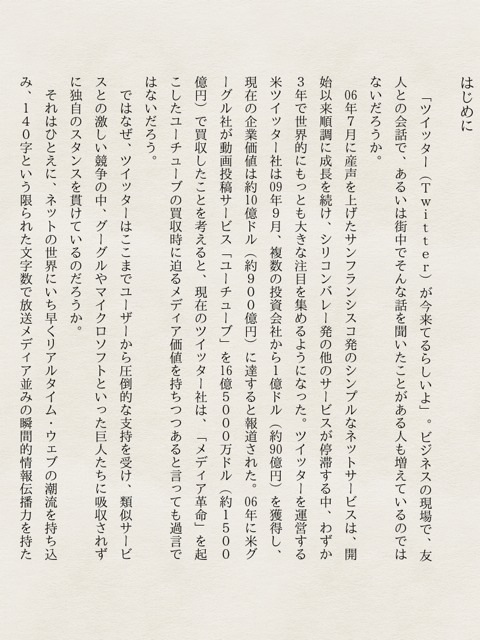 はじめに
「ツイッター（Ｔｗｉｔｔｅｒ）が今来てるらしいよ」。ビジネスの現場で、友
人との会話で、あるいは街中でそんな話を聞いたことがある人も増えているのでは
ないだろうか。
06年７月に産声を上げたサンフランシスコ発のシンプルなネットサービスは、開
始以来順調に成長を続け、シリコンバレー発の他のサービスが停滞する中、わずか
３年で世界的にもっとも大きな注目を集めるようになった。ツイッターを運営する
米ツイッター社は09年９月、複数の投資会社から１億ドル（約90億円）を獲得し、
現在の企業価値は約10億ドル（約９００億円）に達すると報道された。06年に米グ
ーグル社が動画投稿サービス「ユーチューブ」を16億５０００万ドル（約１５００
億円）で買収したことを考えると、現在のツイッター社は、「メディア革命」を起
こしたユーチューブの買収時に迫るメディア価値を持ちつつあると言っても過言で
はないだろう。
ではなぜ、ツイッターはここまでユーザーから圧倒的な支持を受け、類似サービ
スとの激しい競争の中、グーグルやマイクロソフトといった巨人たちに吸収されず
に独自のスタンスを貫けているのだろうか。
それはひとえに、ネットの世界にいち早くリアルタイム・ウェブの潮流を持ち込
み、１４０字という限られた文字数で放送メディア並みの瞬間的情報伝播力を持た